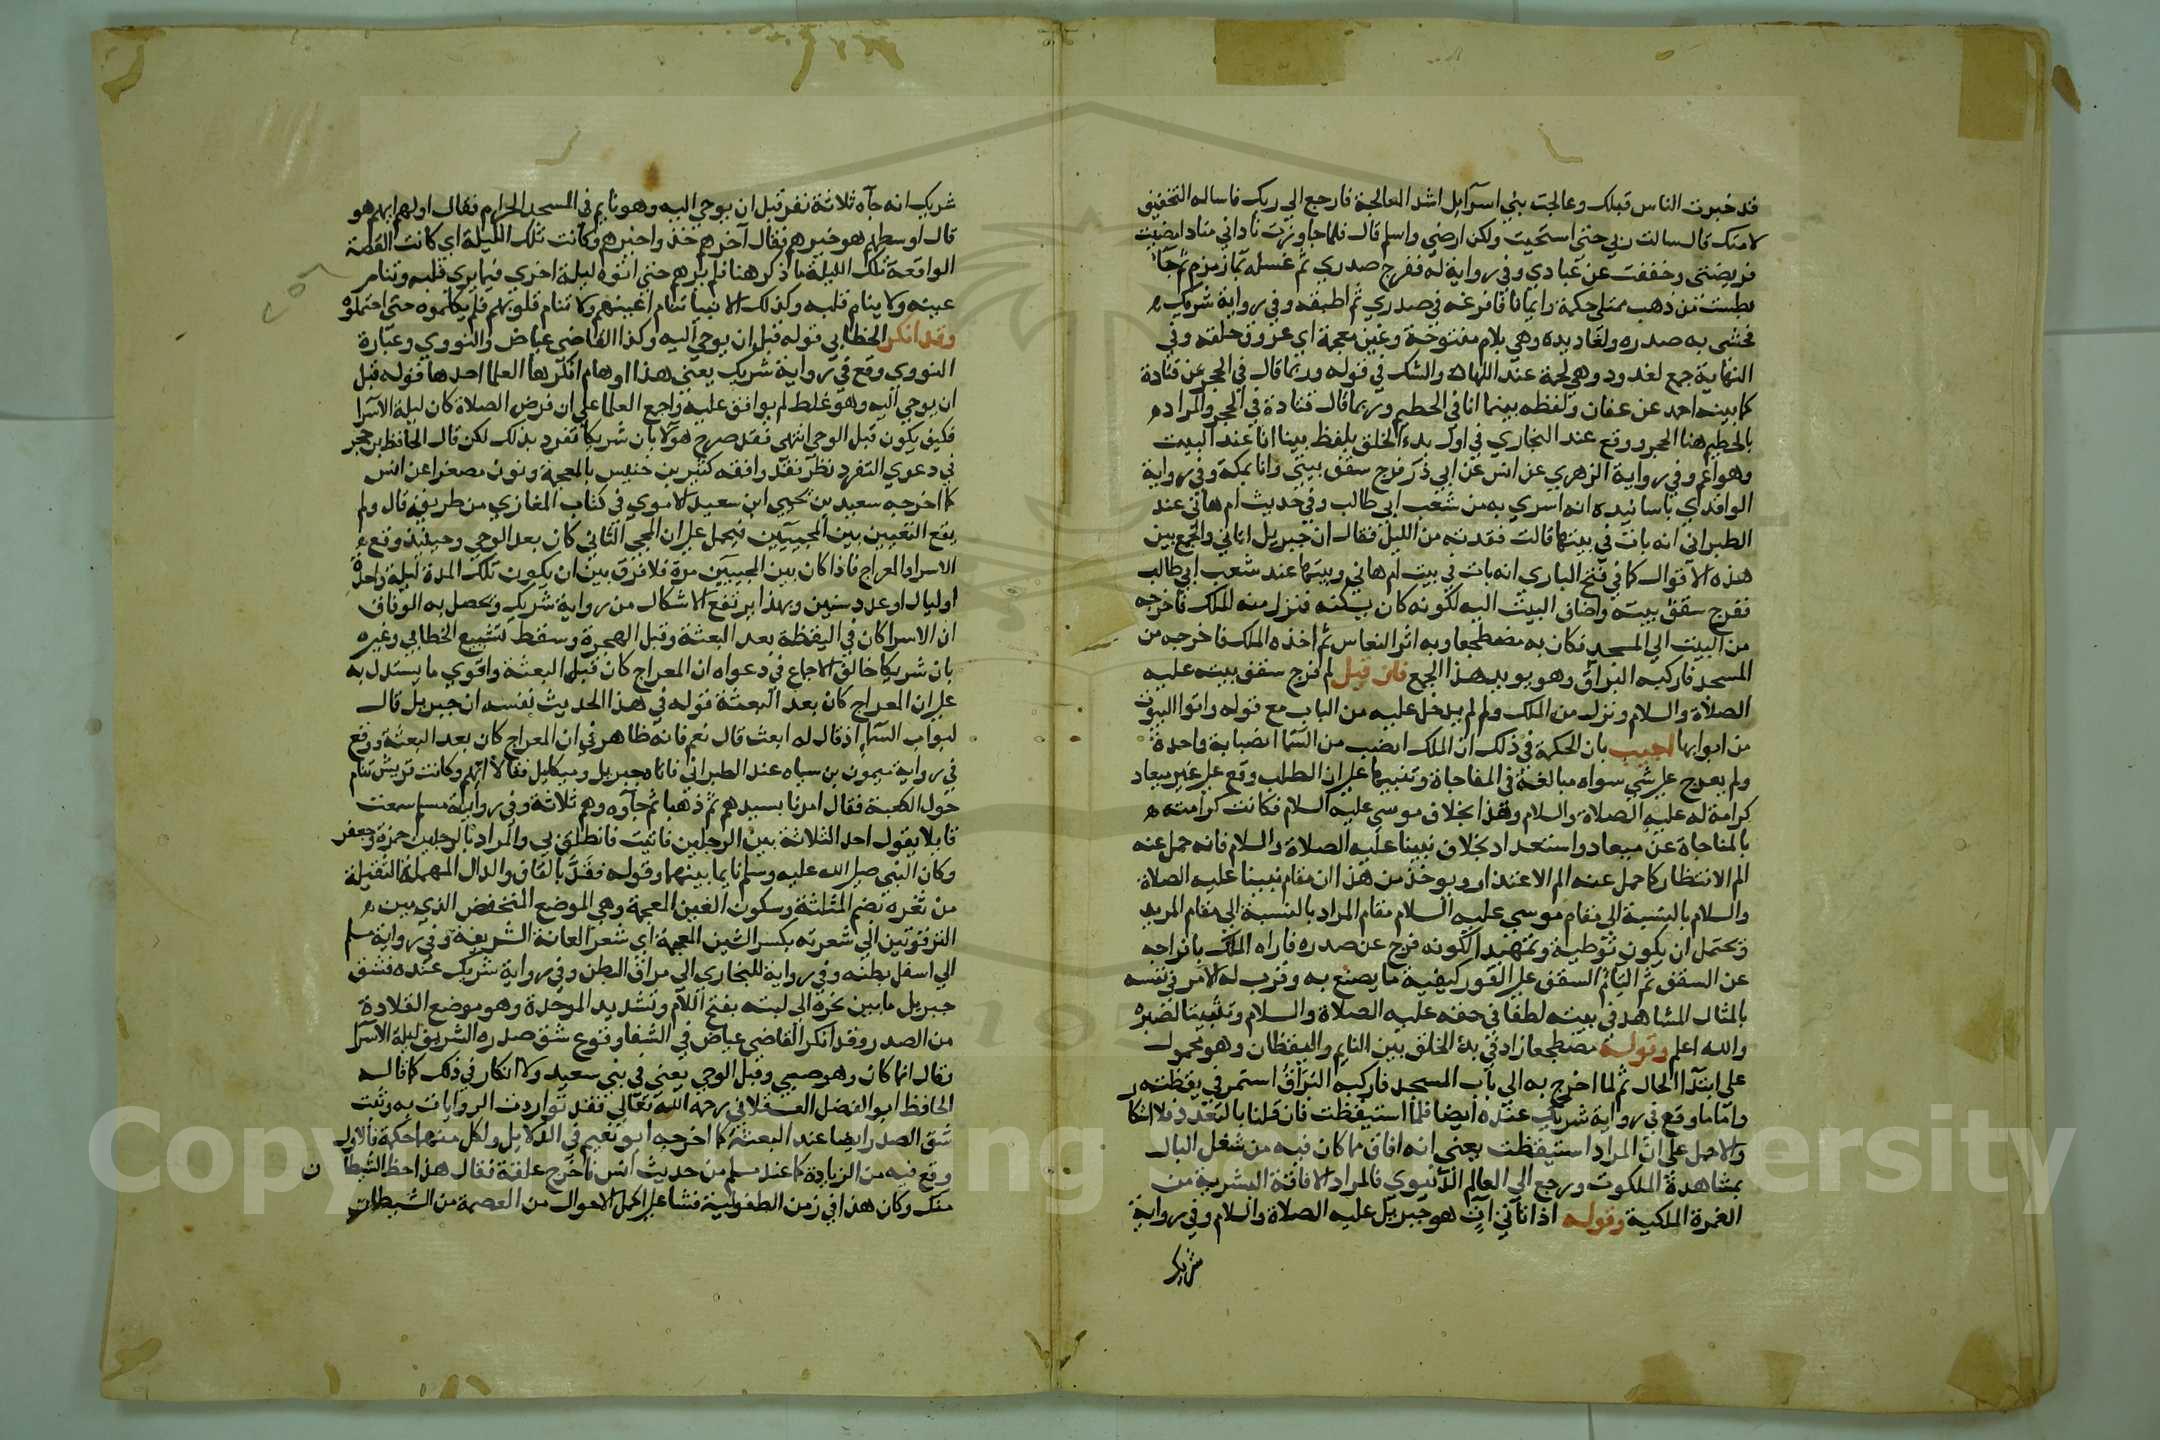 قد خبرت الناس قبلك وعالجت بني اسرآيل اشد المعالجة فارجع الى ربك فاساله التخفيف
لامتك قال سالت ربي حتى استحيت ولكن ارضى واسلم قال فلما جاوزت ناداني مناد امضيت
فريضتي وخففت عن عبادي وفي رواية له ففرج صدري ثم غسله بما زمزم ثم جآء
بطست من ذهب ممتلي حكمة وايمانا فافرغه في صدري ثم اطبقه وفي رواية شريك
فحشى به صدره ولغاديده وهي بلام مفتوحة وغين معجمة اي عروق حلقه وفي
النهاية جمع لغدود وهي لحمة عند اللهاة والشك في قوله وربما قال في الحجر عن قتادة
كما بينه احمد عن عفان ولفظه بينما انا في الحطيم وربما قال قتادة في الحجر والمراد
بالحطيم هنا الحجر ووقع عند البخاري في اول بدء الخلق بلفظ بينا انا عند البيت
وهو اعم وفي رواية الزهري عن انس عن ابي ذر فرج سقف بيتي وانا بمكة وفي رواية
الواقدي باسانيده انه اسري به من شعب ابي طالب وفي حديث ام هاني عند
الطبراني انه بات في بيتها قالت فقدته من الليل فقال ان جبريل اتاني والجمع بين
هذه الاقوال كما في فتح الباري انه بات في بيت ام هاني وبيتها عند شعب ابي طالب
ففرج سقف بيته واضاف البيت اليه لكونه كان يسكنه فنزل منه الملك فاخرجه
من البيت الى المسجد فكان به مضطجعا وبه اثر النعاس ثم اخذه الملك فاخرجه من
المسجد فاركبه البراق وهو يويد هذا الجمع فان قيل لم فرج سقف بيته عليه
الصلاة والسلام ونزل من الملك ولم لم يدخل عليه من الباب مع قوله واتوا البيوت
من ابوابها اجيب بان الحكمة في ذلك ان الملك انصب من السما انصبابة واحدة
ولم يعرج على شي سواه مبالغة في المفاجاة وتنبيها على ان الطلب وقع على غير ميعاد
كرامة له عليه الصلاة والسلام وهذا بخلاف موسى عليه السلام فكانت كرامته
بالمناجاة عن ميعاد واستعداد بخلاف نبينا عليه الصلاة والسلام فانه حمل عنه
الم الانتظار كما حمل عنه الم الاعتذار ويوخذ من هذا ان مقام نبينا عليه الصلاة
والسلام بالنسبة الى مقام موسى عليه السلام مقام المراد بالنسبة الى مقام المريد
ويحتمل ان يكون توطية وتمهيدا لكونه فرج عن صدره فاراه الملك بافراجه
عن السقف ثم التيام السقف على الفور كيفية ما يصنع به وقرب له الامر في نفسه
بالمثال المشاهد في بيته لطفا في حقه عليه الصلاة والسلام وتثبيتا لصبره
والله اعلم وقوله مضطجعا زاد في بدء الخلق بين النايم واليقظان وهو محمول
على ابتدآ الحال ثم لما اخرج به الى باب المسجد فاركبه البراق استمر في يقظته
واما ما وقع في رواية شريك عنده ايضا فلما استيقظت فان قلنا بالتعدد فلا اشكال
والا حمل على ان المراد استيقظت يعني انه افاق مما كان فيه من شغل البال
بمشاهدة الملكوت ورجع الى العالم الدنيوي فالمراد الافاقة البشرية من
الغمرة الملكية وقوله اذ اتاني آت هو جبريل عليه الصلاة والسلام وفي رواية
شريك
شريك انه جآه ثلاثة نفر قبل ان يوحي اليه وهو نايم في المسجد الحرام فقال اولهم ايهم هو
قال اوسطهم هو خيرهم فقال آخرهم خذوا خيرهم وكانت تلك الليلة اي كانت القصة
الواقعة تلك الليلة ما ذكر هنا فلم يرهم حتى اتوه ليلة اخرى فيما يرى قلبه وتنام
عينه ولا ينام قلبه وكذلك الانبيا تنام اعينهم ولا تنام قلوبهم فلم يكلموه حتى احتملوه
وقد انكر الخطابي قوله قبل ان يوحي اليه وكذا القاضي عياض والنووي وعبارة
النووي وقع في رواية شريك يعني هذا اوهام انكرها العلما احدها قوله قبل
ان يوحي اليه وهو غلط لم يوافق عليه واجمع العلما على ان فرض الصلاة كان ليلة الاسرا
فكيف يكون قبل الوحي انتهى فقد صرح هولا بان شريكا تفرد بذلك لكن قال الحافظ بن حجر
في دعوى التفرد نظر فقد وافقه كثير بن خنيس بالمعجمة ونون مصغرا عن انس
كما اخرجه سعيد بن يحيى ابن سعيد الاموي في كتاب المغازي من طريقه قال ولم
يقع التعيين بين المجيئين فيحمل على ان المجي الثاني كان بعد الوحي وحينئذ وقع
الاسرا والمعراج فاذا كان بين المجيئين مدة فلا فرق بين ان يكون تلك المدة ليلة واحدة
او ليال او عدد سنين وبهذا يرتفع الاشكال من رواية شريك ويحصل به الوفاق
ان الاسرا كان في اليقظة بعد البعثة وقبل الهجرة وسقط تشنيع الخطابي وغيره
بان شريكا خالف الاجماع في دعواه ان المعراج كان قبل البعثة واقوى ما يستدل به
على ان المعراج كان بعد البعثة قوله في هذا الحديث نفسه ان جبريل قال
لبواب السمآ اذ قال له ابعث قال نعم فانه ظاهر في ان المعراج كان بعد البعثة ووقع
في رواية ميمون بن سياه عند الطبراني فاتاه جبريل وميكايل فقالا ايهم وكانت قريش تنام
حول الكعبة فقال امرنا بسيدهم ثم ذهبا ثم جآوه وهم ثلاثة وفي رواية مسلم سمعت
قايلا يقول احد الثلاثة بين الرجلين فاتيت فانطلق بي والمراد بالرجلين حمزة وجعفر
وكان النبي صلى الله عليه وسلم نايما بينهما وقوله فقد بالقاف والدال المهملة الثقيلة
من ثغره بضم المثلثة وسكون الغين المعجمة وهي الموضع المنخفض الذي بين
الترقوتين الى شعرته بكسر الشين المعجمة اي شعر العانة الشريفة وفي رواية مسلم
الى اسفل بطنه وفي رواية للبخاري الى مراق البطن وفي رواية شريك عنده فشق
جبريل ما بين نحره الى لبته بفتح اللام وتشديد الموحدة وهو موضع القلادة
من الصدر وقد انكر القاضي عياض في الشفا وقوع شق صدره الشريف ليلة الاسرآ
وقال انما كان وهو صبي وقبل الوحي يعني في بني سعيد ولا انكار في ذلك كما قاله
الحافظ ابو الفضل العسقلاني رحمه الله تعالى فقد تواردت الروايات به وثبت
شق الصدر ايضا عند البعثة كما اخرجه ابو نعيم في الدلايل ولكل منهما حكمة فالاول
وقع فيه من الزيادة كما عند مسلم من حديث انس فاخرج علقة فقال هذا حظ الشيطان
منك وكان هذا في زمن الطفولية فنشا على اكمل الاحوال من العصمة من الشيطان